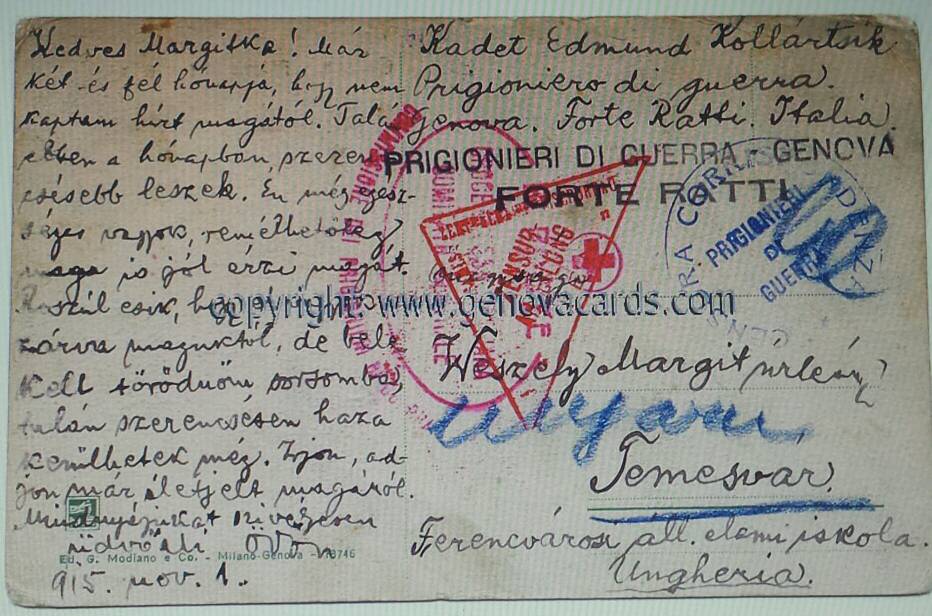 Kedves Margitka! Már
két és fél hónapja, hogy nem
kaptam hírt magától. Talán
ebben a hónapban szeren-
csésebb leszek. Én még egész-
séges vagyok, remélhetőleg
maga is jól érzi magát.
Rosszul esik, hogy el
zárva maguktól, de bele
kell törődnöm sorsomba,
talán szerencsésen haza
kerülhetek még. Írjon, ad-
jon már életjelt magáról.
Mindnyájukat szívélyesen
üdvözli Ödön
915. nov. 1.
Kadet Edmund Kollártsik
Prigioniero di guerra.
Genova. Forte Ratti. Italia.
PRIGIONIERI DI GUERRA - GENOVA
FORTE RATTI
PRIGIONIERI
DI
GUERRA
copyright: www.genovacards.com
Weszely Margit úrleány
Ungarn
Temesvár.
Ferencvárosi áll. elemi iskola.
Ungheria.
Ed. G. Modiano e Co. - Milano-Genova - 18746